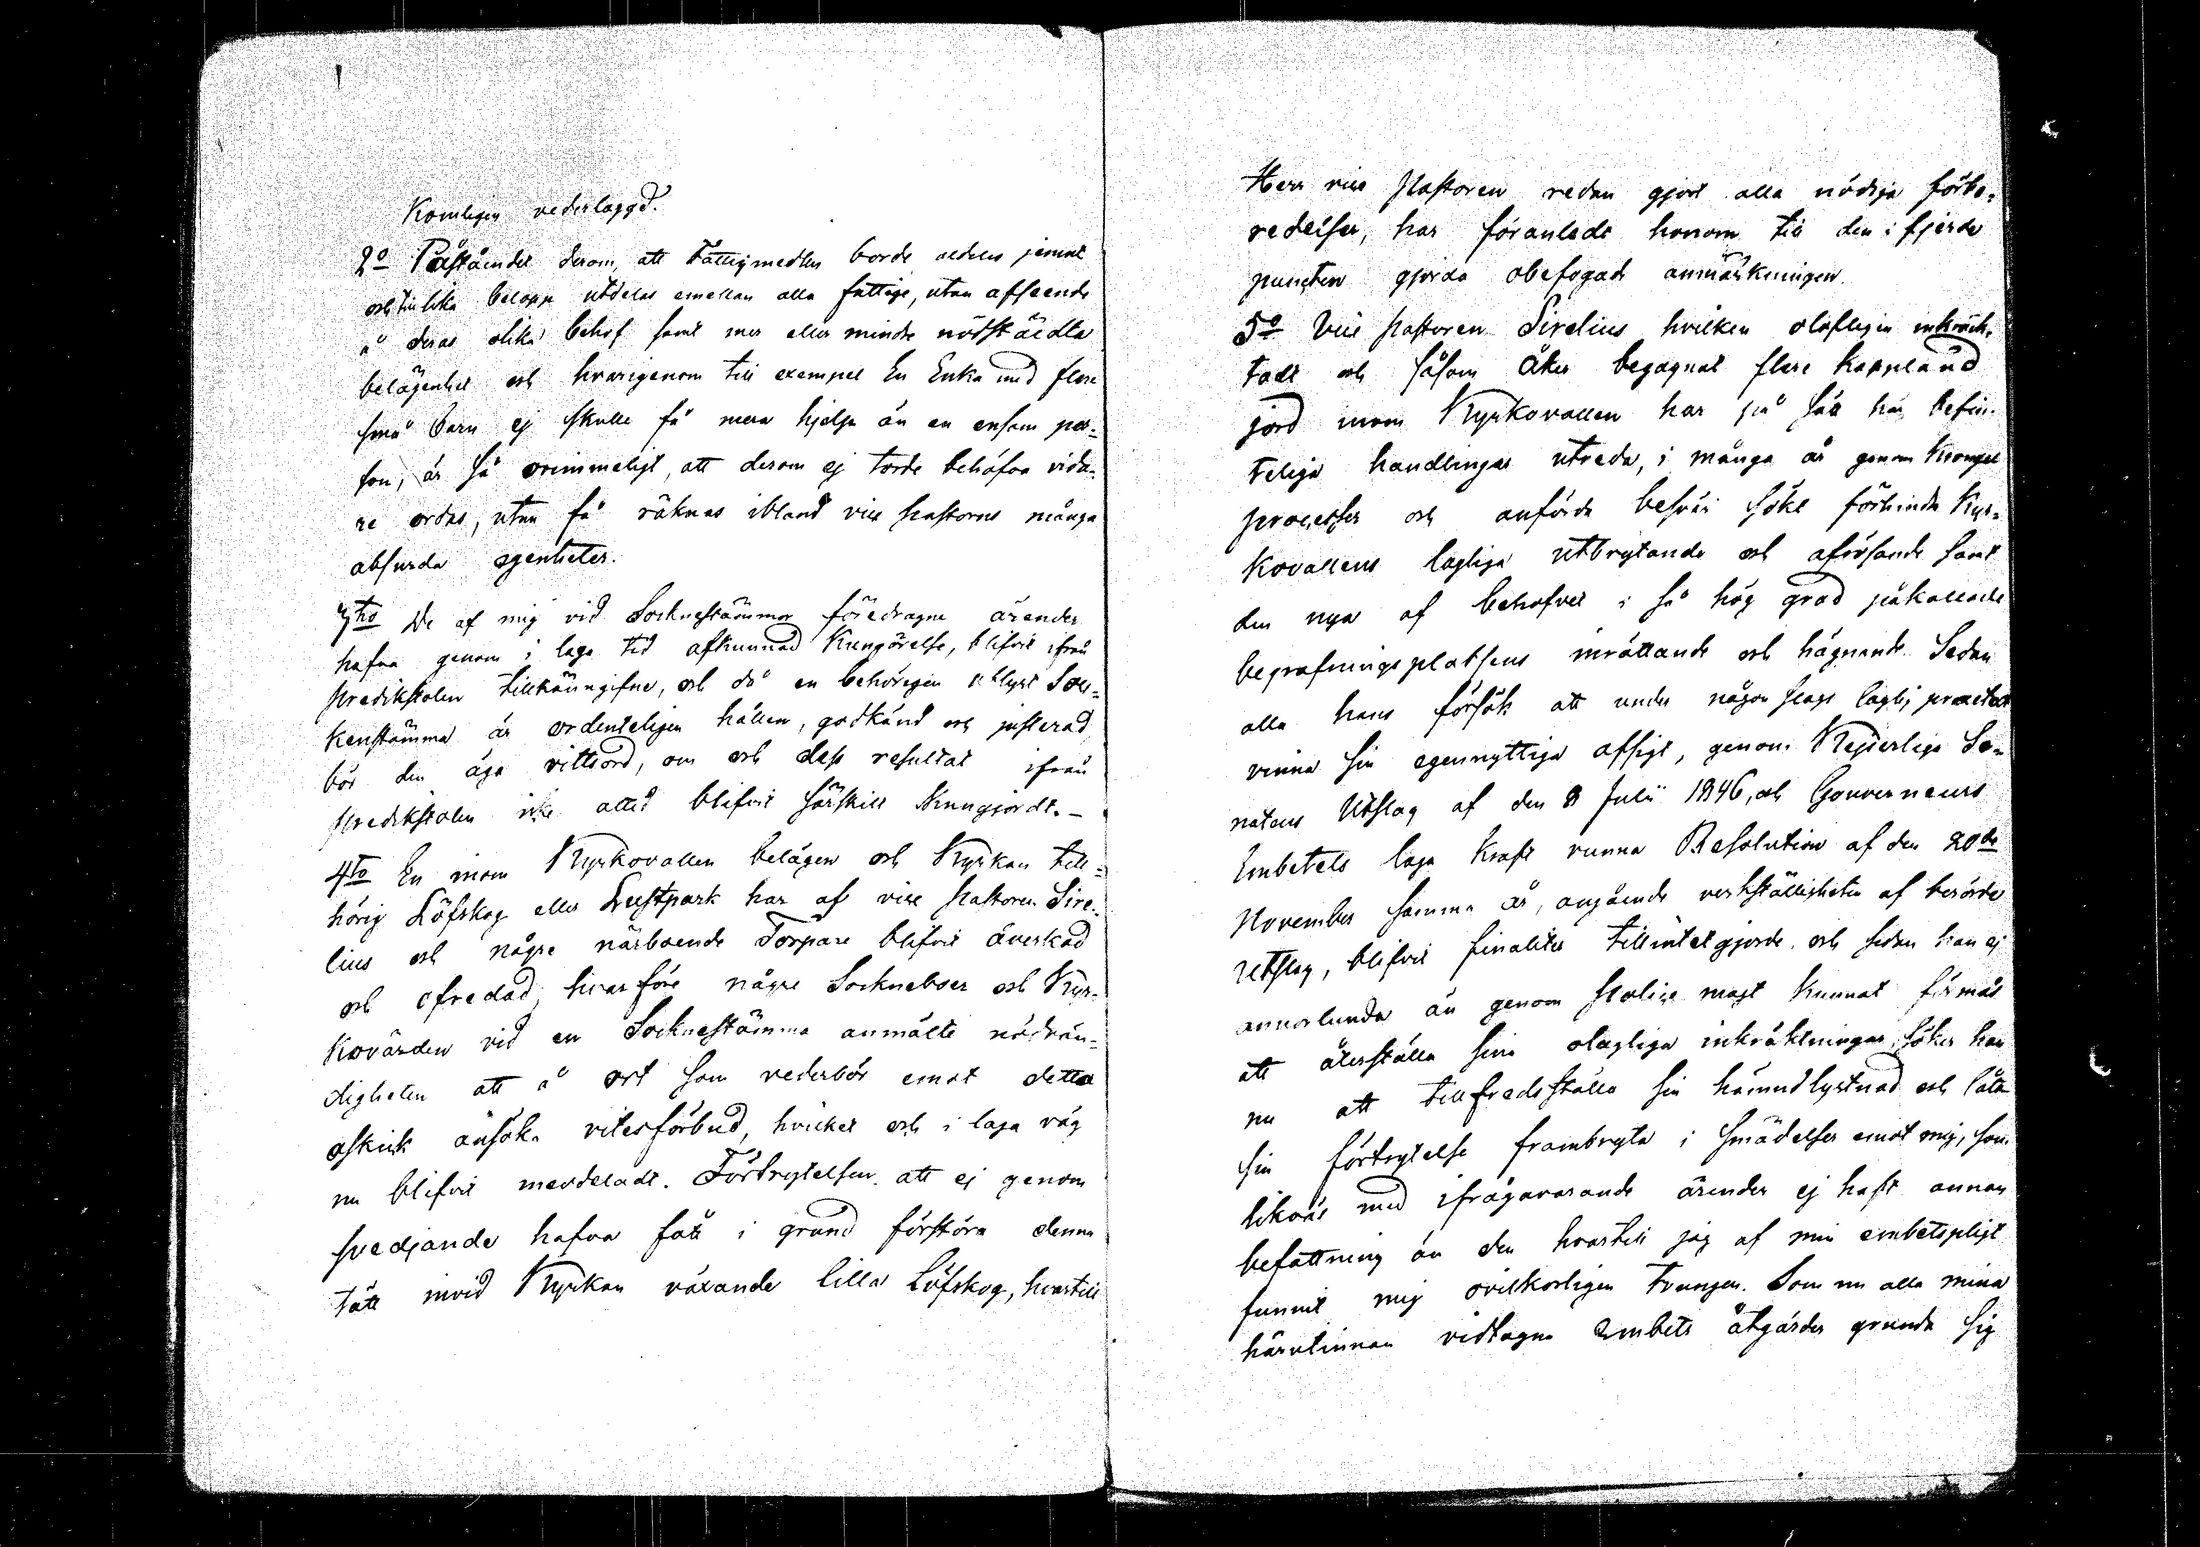 Komligen vederlaggd.
2o Påståendet derom, att Fattigmedlen borde aldeles jemnt
och till lika belopp utdelas emellan alla fattige, utan afseende
å deras olika behof samt mer eller mindre nödställda
belägenhet och hvarigenom till exempel En Enka med flere
små barn ej skulle få mera hjelp än en ensam per-
son, är så orimmeligt, att derom ej torde behöfva vida-
re ordas, utan få räknas ibland vice pastorns många
absurda egenheter.
3tio De af mig vid Socknestämmor föredragne ärender
hafva genom i laga tid afkunnad Kungörelse, blifvit ifrån
Predikstolen tillkänngifne, och då en behörigen utlyst Soc-
kenstämma är ordenteligen hållen, godkänd och justerad
bör den äga vittsord, om och dess resultat ifrån
Predikstolen icke alltid blifvit särskilt Kungjordt. –
4to En inom Kyrkovallen belägen och Kyrkan till-
hörig Löfskog eller Lustpark har af vice Pastoren Sire-
lius och någre närboende Torpare blifvit åverkad
och ofredad, hvarföre någre Sockneboer och Kyr-
kovärden vid en Socknestämma anmälte nödvän-
digheten att å ort som vederbör emot detta
oskick ansöka vitesförbud, hvilket och i laga väg
nu blifvit meddeladt. Förtrytelsen att ej genom
svedjande hafva fått i grund förstöra denna
tätt invid Kyrkan växande lilla Löfskog, hvartill
Herr vice Pastoren redan gjort alla nödiga förbe-
redelser, har föranledt honom till den i fjerde
puncten gjorda obefogade anmärkningen.
5o Vice Pastoren Sirelius hvilken olofligen inkräck-
tadt och såsom åker begagnat flere Kappland
jord inom Kyrkovallen har på sätt här befin-
teliga handlingar utreda, i många år genom Krongel
processer och anförda besvär sökt förhindra Kyr-
kovallens lagliga utbrytande och afrösande samt
den nya af behofvet i så hög grad påkallade
begrafningsplatsens inrättande och hägnande. Sedan
alla hans försök att under någon slags laglig praetext
vinna sin egennyttiga afsigt, genom Kejserliga Se-
natens Utslag af den 8 Julii 1846, och Gouverneurs
Embetets laga kraft vunna Resolution af den 20de
November samma år, angående verkställigheten af berörde
Utslag, blifvit finaliter tillintetgjorde, och sedan han ej
annorlunda än genom Police magt kunnat förmås
att återställa sine olagliga inkräktningar, söker han
nu att tillfredsställa sin hämndlystnad och låta
sin förtrytelse frambryta i smädelser emot mig, som
likväl med ifrågavarande ärender ej haft annan
befattning än den hvartill jag af min embetspligt
funnit mig ovilkorligen tvungen. Som nu alla mina
härutinnan vidtagne Embets åtgärder grunda sig